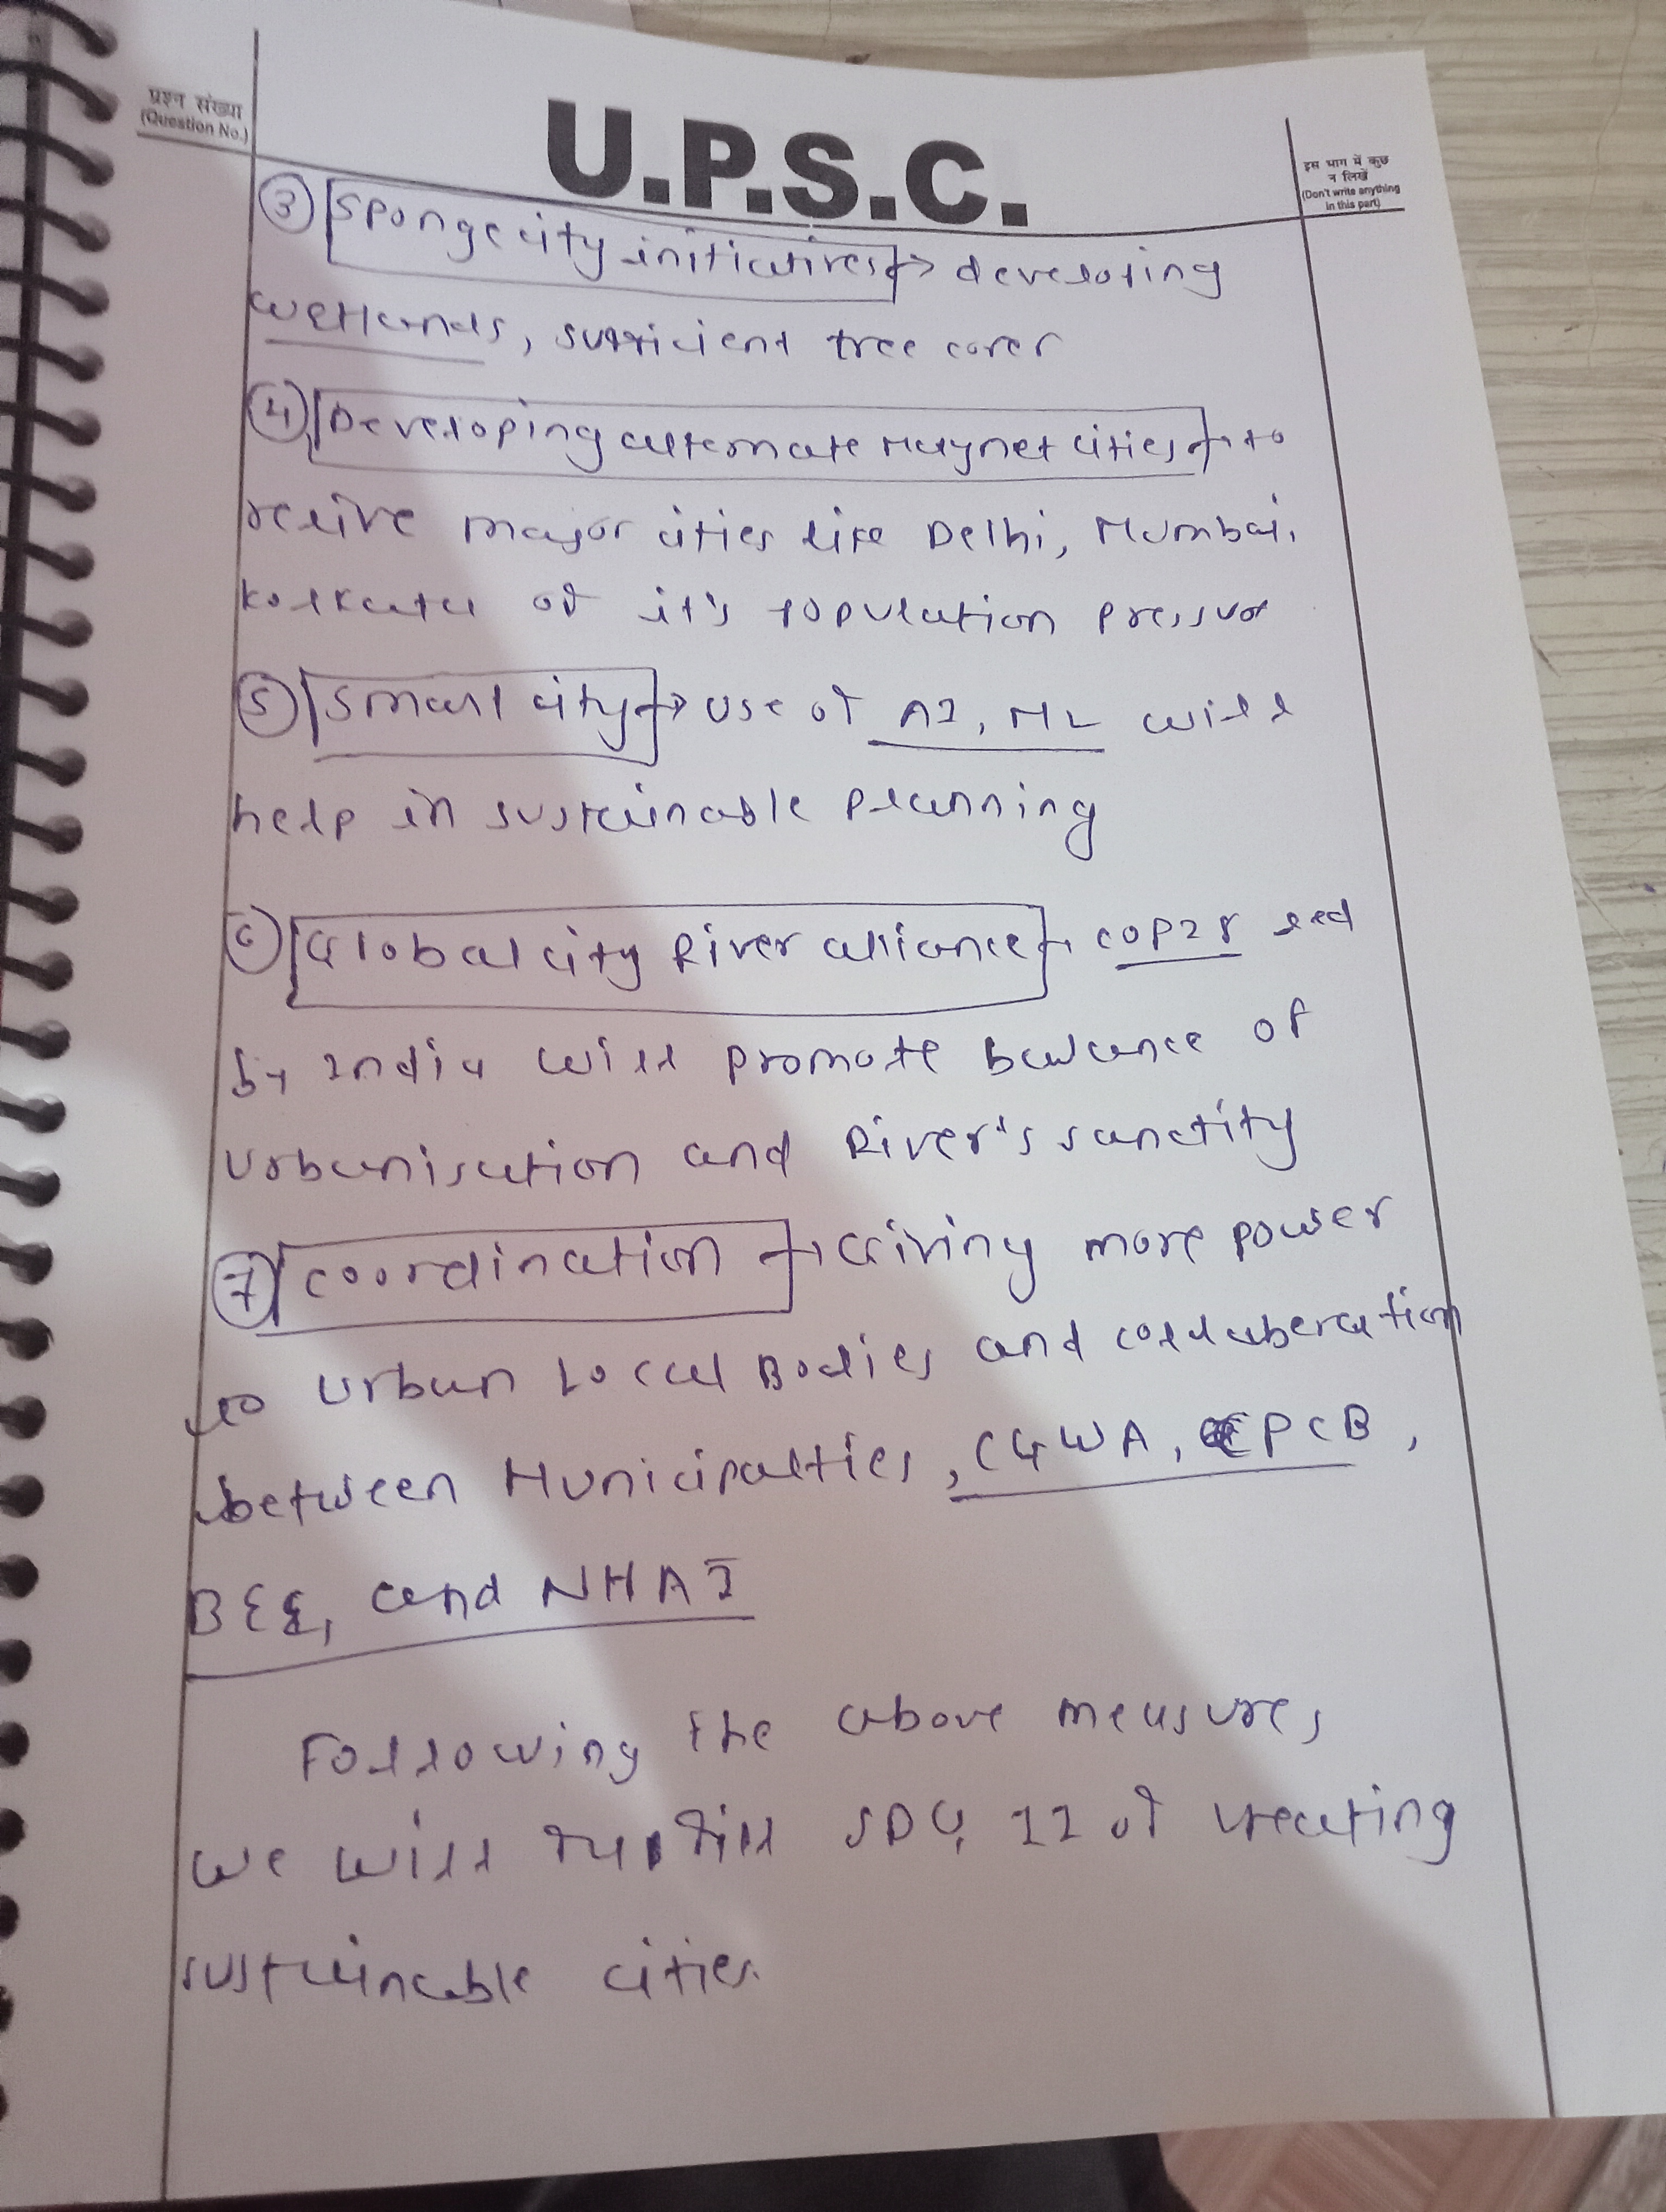 प्रश्न संख्या
(Question No.)
U.P.S.C.
इस भाग में कुछ
न लिखें
(Don't write anything
in this part)
③ Sponge city initiatives → developing
wetlands, sufficient tree cover
④ Developing alternate Magnet cities → to
relive major cities like Delhi, Mumbai,
Kolkata of it's population pressure
⑤ Smart city → Use of AI, ML will
help in sustainable planning
⑥ Global city River alliance → COP28 led
by India will promote balance of
urbanisation and River's sanctity
⑦ Coordination → Giving more power
to Urban Local Bodies and collaberation
between Municipalties, CGWA, CPCB,
BEE, and NHAI
Following the above measures
we will fulfill SDG 11 of creating
sustainable cities.